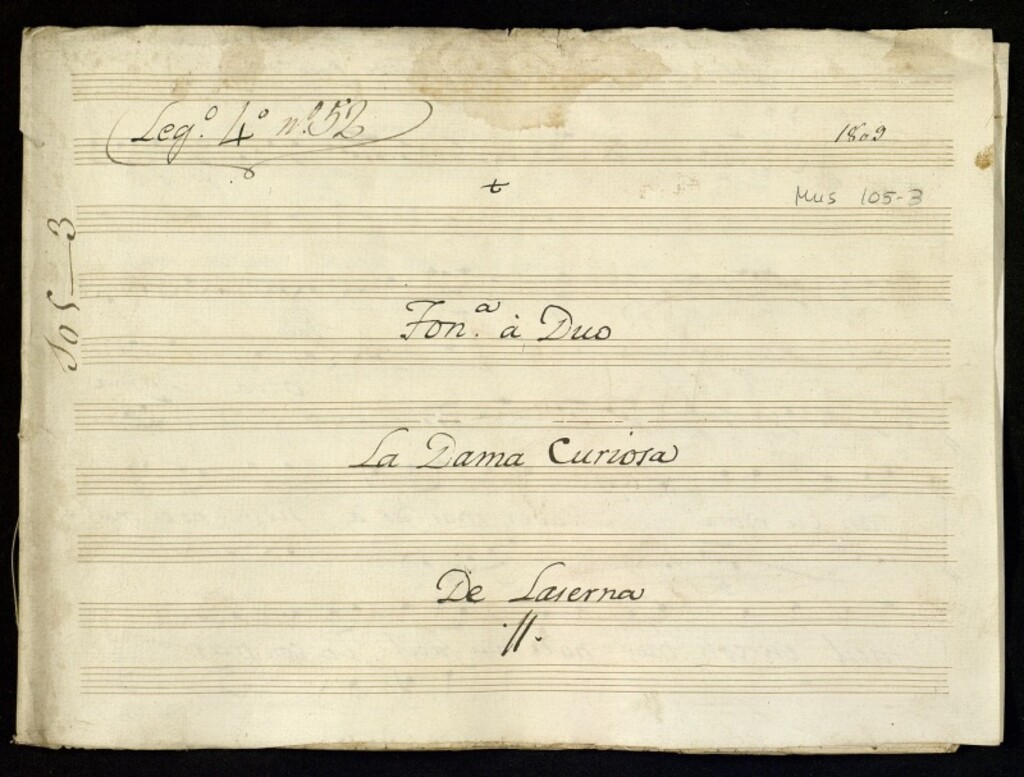 Leg.º 4º nº 52
1809
+
Mus 105-3
105-3
Ton.ª à Duo
La Dama Curiosa
De Laserna